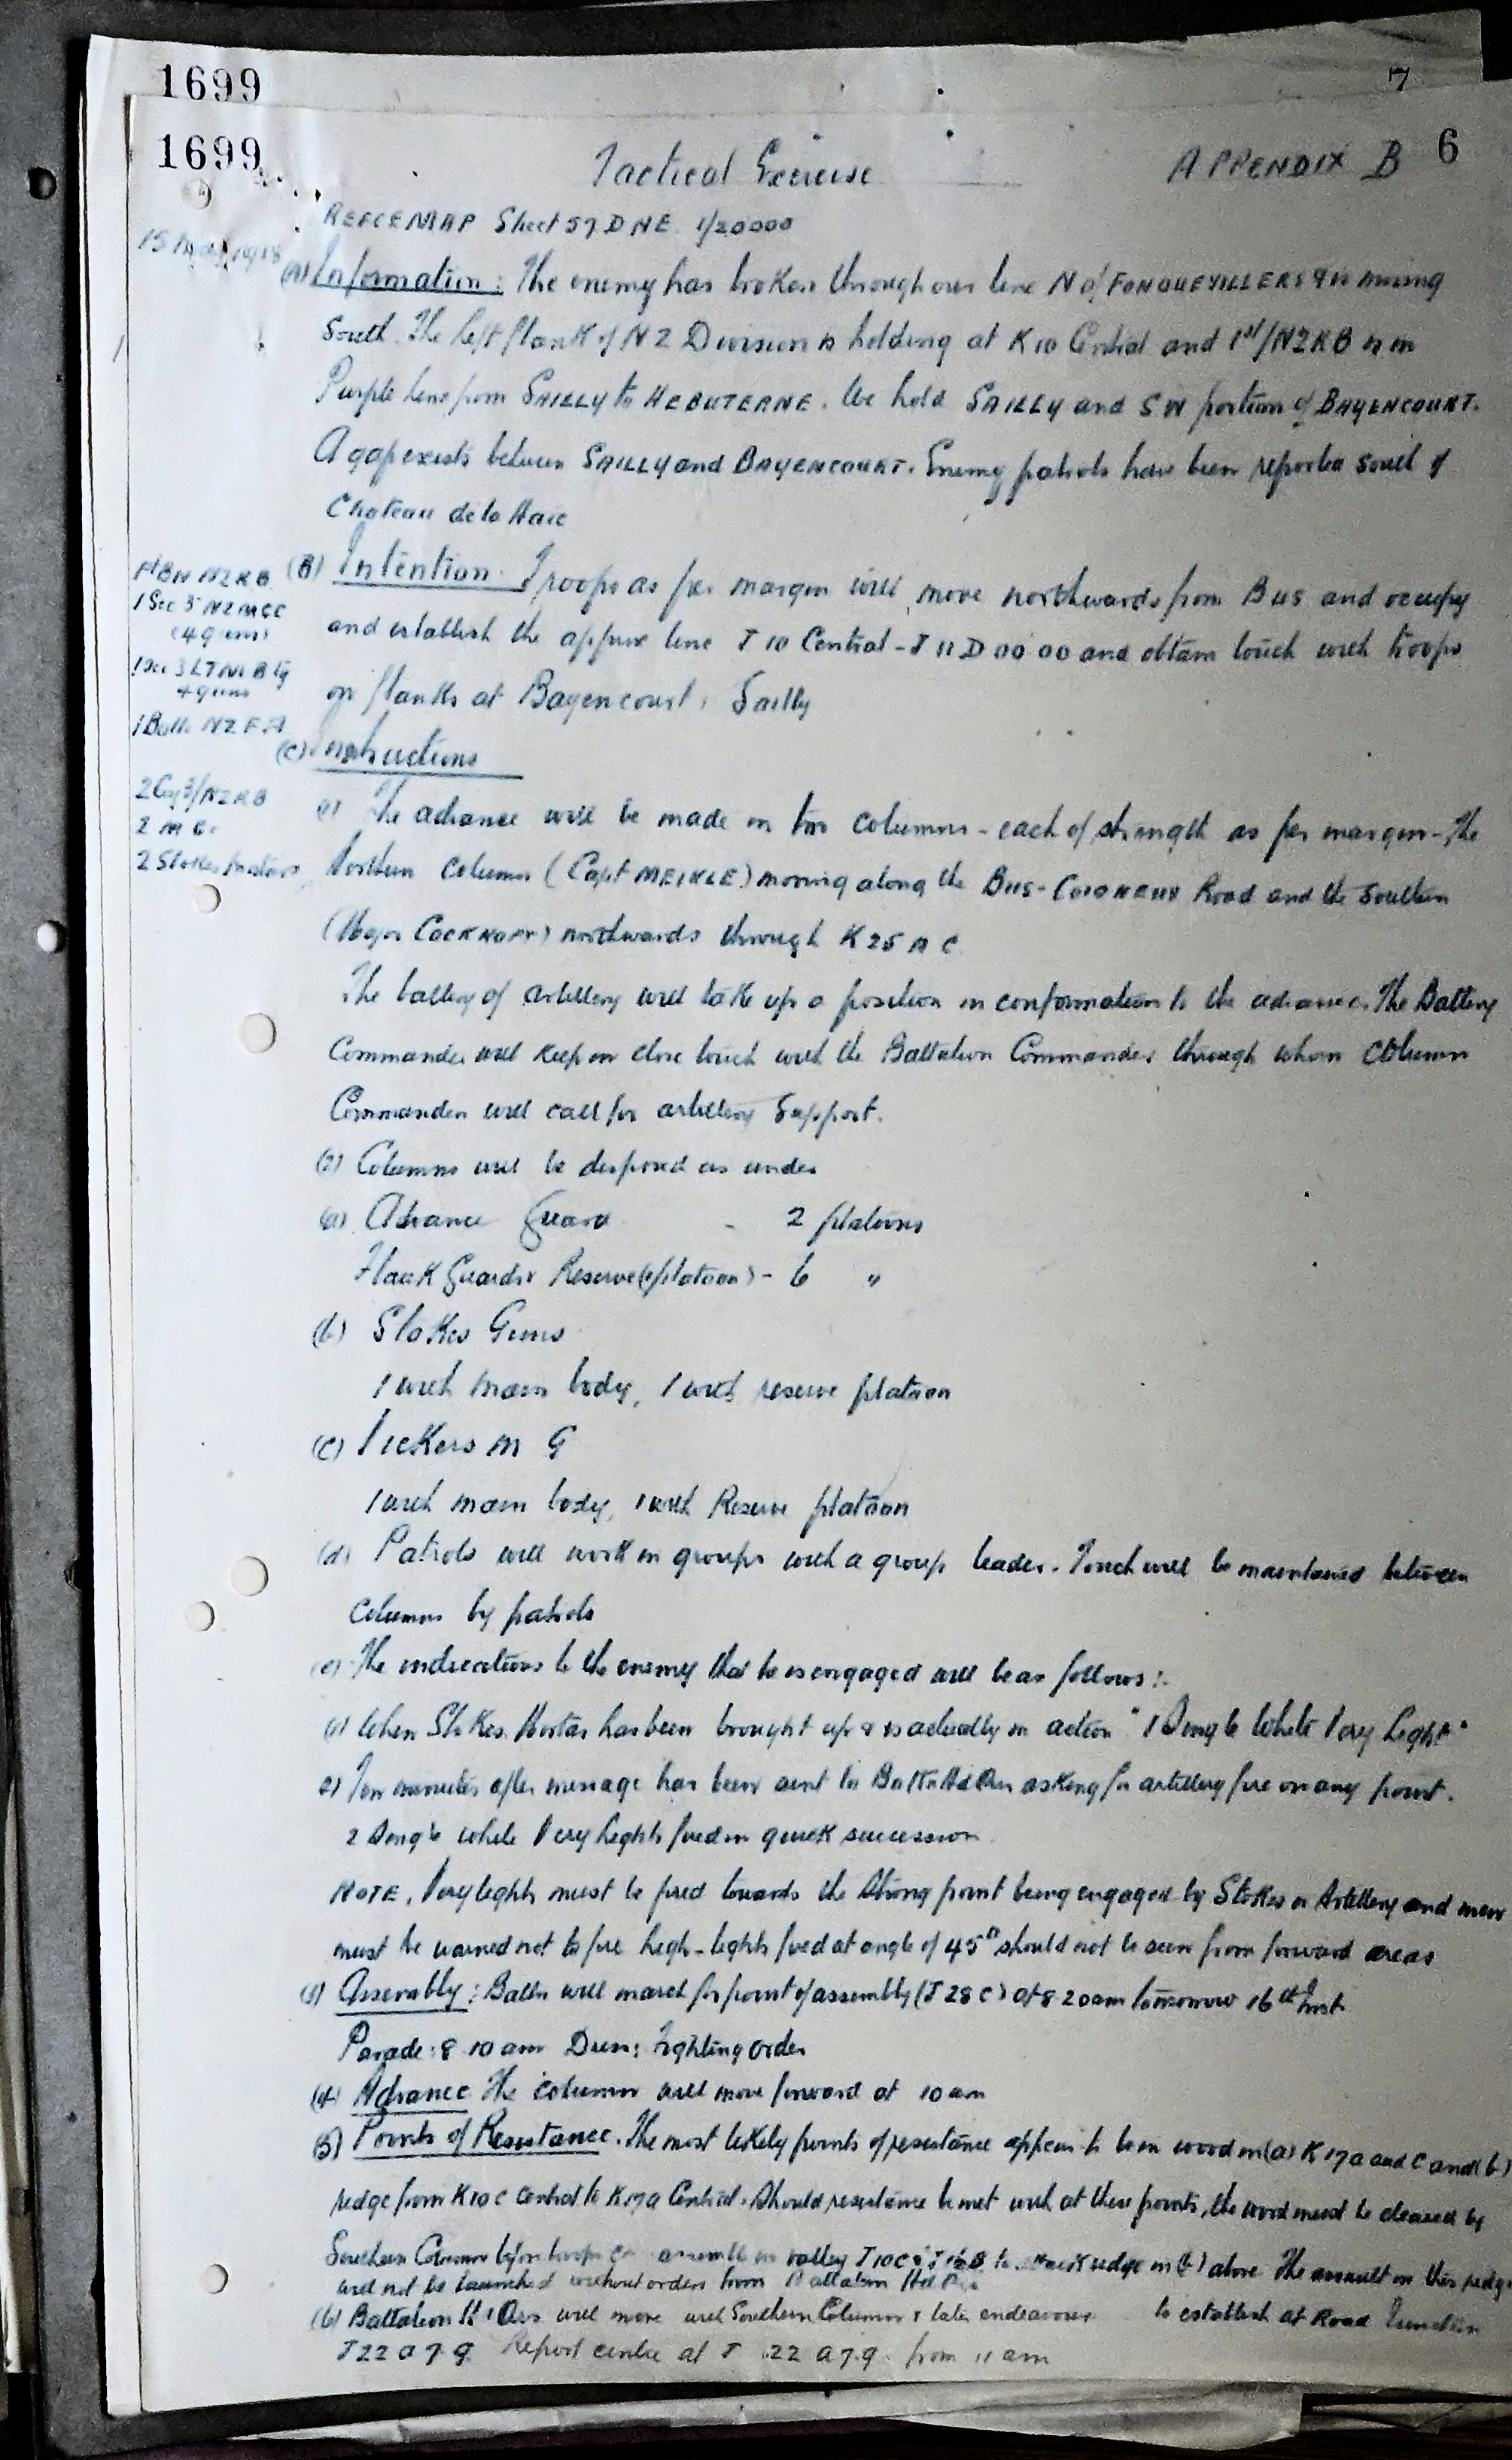 1699
7
1699
6
Tactical Exercise
APPENDIX B
REFCE MAP Sheet 57 D NE 1/20000
15 May 1918
(A) Information: The enemy has broken through our line N of FONQUEVILLERS & is moving
South. The left flank of NZ Division is holding at K 10 Central and 1st/NZRB is in
Purple line from SAILLY to HEBUTERNE. We hold SAILLY and SW portion of BAYENCOURT.
A gap exists between SAILLY and BAYENCOURT. Enemy patrols have been reported south of
Chateau de la Haie
1st BN NZRB
1 Sec 3 NZMGC
(4 guns)
1 Sec 3 LTM Btg
4 guns
1 Batt. NZFA
(B) Intention. Troops as per margin will move northwards from Bus and occupy
and establish the approx line J 10 Central - J 11 D 00 00 and obtain touch with troops
on flanks at Bayencourt & Sailly
(C) Instructions
2 Coy 3/NZRB
2 M G.
2 Stokes Mortars
(1) The advance will be made in two columns - each of strength as per margin - the
Northern Column (Capt MEIKLE) moving along the BUS-COIGNEUX Road and the Southern
(Major COCKROFT) northwards through K 25 A C
The battery of artillery will take up a position in conformation to the advance. The Battery
Commander will keep in close touch with the Battalion Commander through whom Column
Commanders will call for artillery support.
(2) Columns will be disposed as under
(a) Advance Guard - 2 platoons
Flank Guards & Reserve (1 platoon) - 6 "
(b) Stokes Guns
1 with main body, 1 with reserve platoon
(c) Vickers M G
1 with main body, 1 with Reserve platoon
(d) Patrols will work in groups with a group leader. Touch will be maintained between
columns by patrols
(e) The indications to the enemy that he is engaged will be as follows:-
(1) When Stokes Mortar has been brought up & is actually in action "1 Single White Very Light"
2) Ten minutes after message has been sent to Battn Hd Qrs asking for artillery fire on any point.
2 Single white Very lights fired in quick succession.
NOTE. Very lights must be fired towards the strong point being engaged by Stokes or Artillery and men
must be warned not to fire high - lights fired at angle of 45° should not be seen from forward areas
(3) Assembly: Battn will march for point of assembly (J 28 C) at 8 20 am tomorrow 16th Inst.
Parade: 8 10 am Dress: Fighting Order
(4) Advance The columns will move forward at 10 am
(5) Points of Resistance. The most likely points of resistance appear to be in wood in (a) K 17 a and C and (b)
ridge from K 10 c Central to K 17 a Central. Should resistance be met with at these points, the wood must be cleared by
Southern Column before troops assemble in valley J 10 C & J 16 B to attack ridge in (b) above. The assault on this ridge
will not be launched without orders from Battalion Hd Qrs.
(6) Battalion Hd Qrs will move with Southern Column & later endeavour to establish at Road Junction
J 22 a 7.9. Report centre at J 22 a 7.9. from 11 am